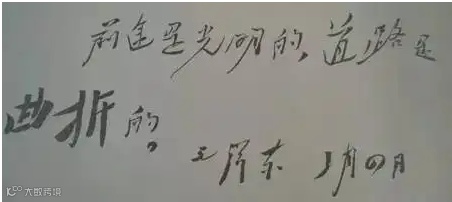 前途是光明的,道路是
曲折的。
毛泽东 3月四月
大数跨境